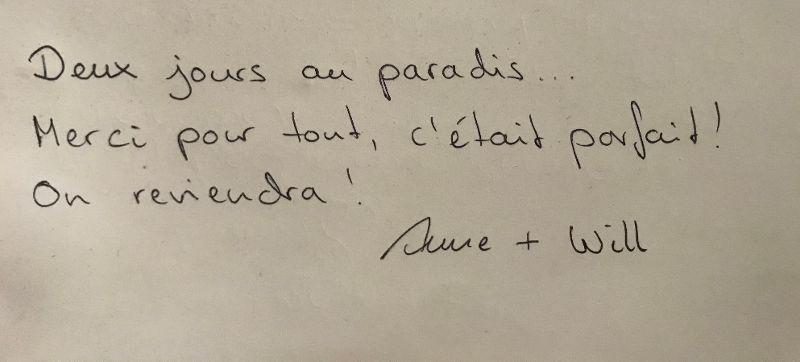 Deux jours au paradis...
Merci pour tout, c'était parfait!
On reviendra!
Anne + Will